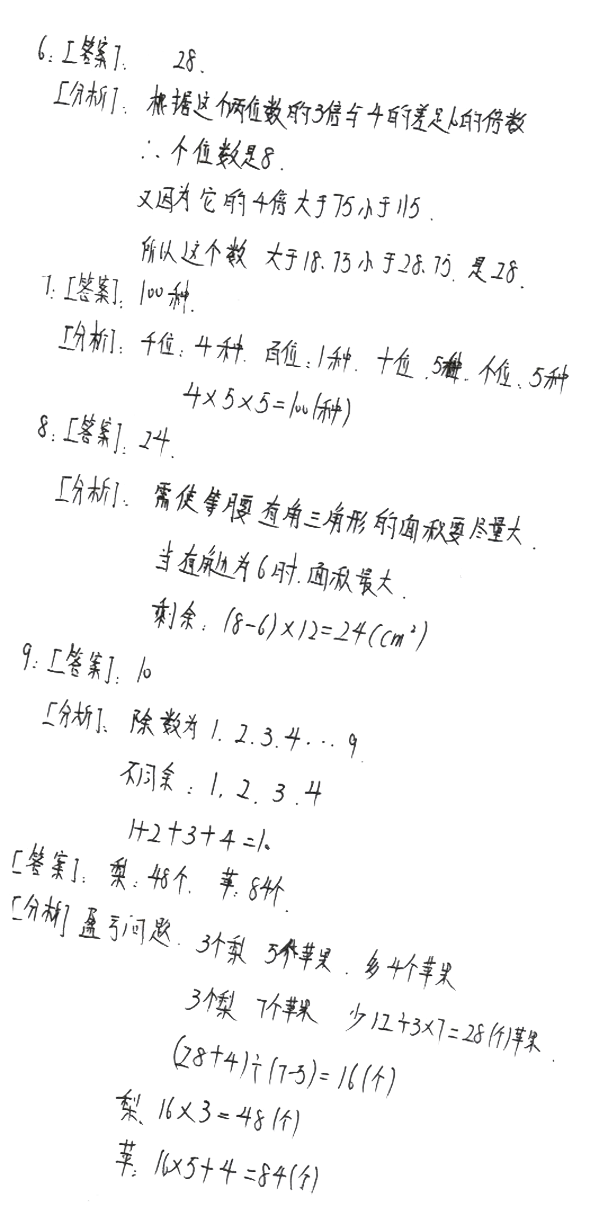 6:[答案]: 28.
[分析]: 根据这个两位数的3倍与4的差是10的倍数
∴个位数是8.
又因为它的4倍大于75小于115.
所以这个数 大于18.75小于28.75. 是28.
7:[答案]: 100种.
[分析]: 千位:4种. 百位:1种. 十位:5种. 个位:5种
4×5×5=100(种)
8:[答案]: 24.
[分析]: 需使等腰直角三角形的面积要尽量大.
当直角边为6时.面积最大.
剩余:(8-6)×12=24(cm²)
9:[答案]: 10
[分析]: 除数为1.2.3.4…9.
不同余:1.2.3.4
1+2+3+4=10
[答案]: 梨:48个. 苹:84个.
[分析] 盈亏问题. 3个梨 5个苹果. 多4个苹果
3个梨 7个苹果 少12÷3×7=28(个)苹果.
(28+4)÷(7-5)=16(个)
梨:16×3=48(个)
苹:16×5+4=84(个)